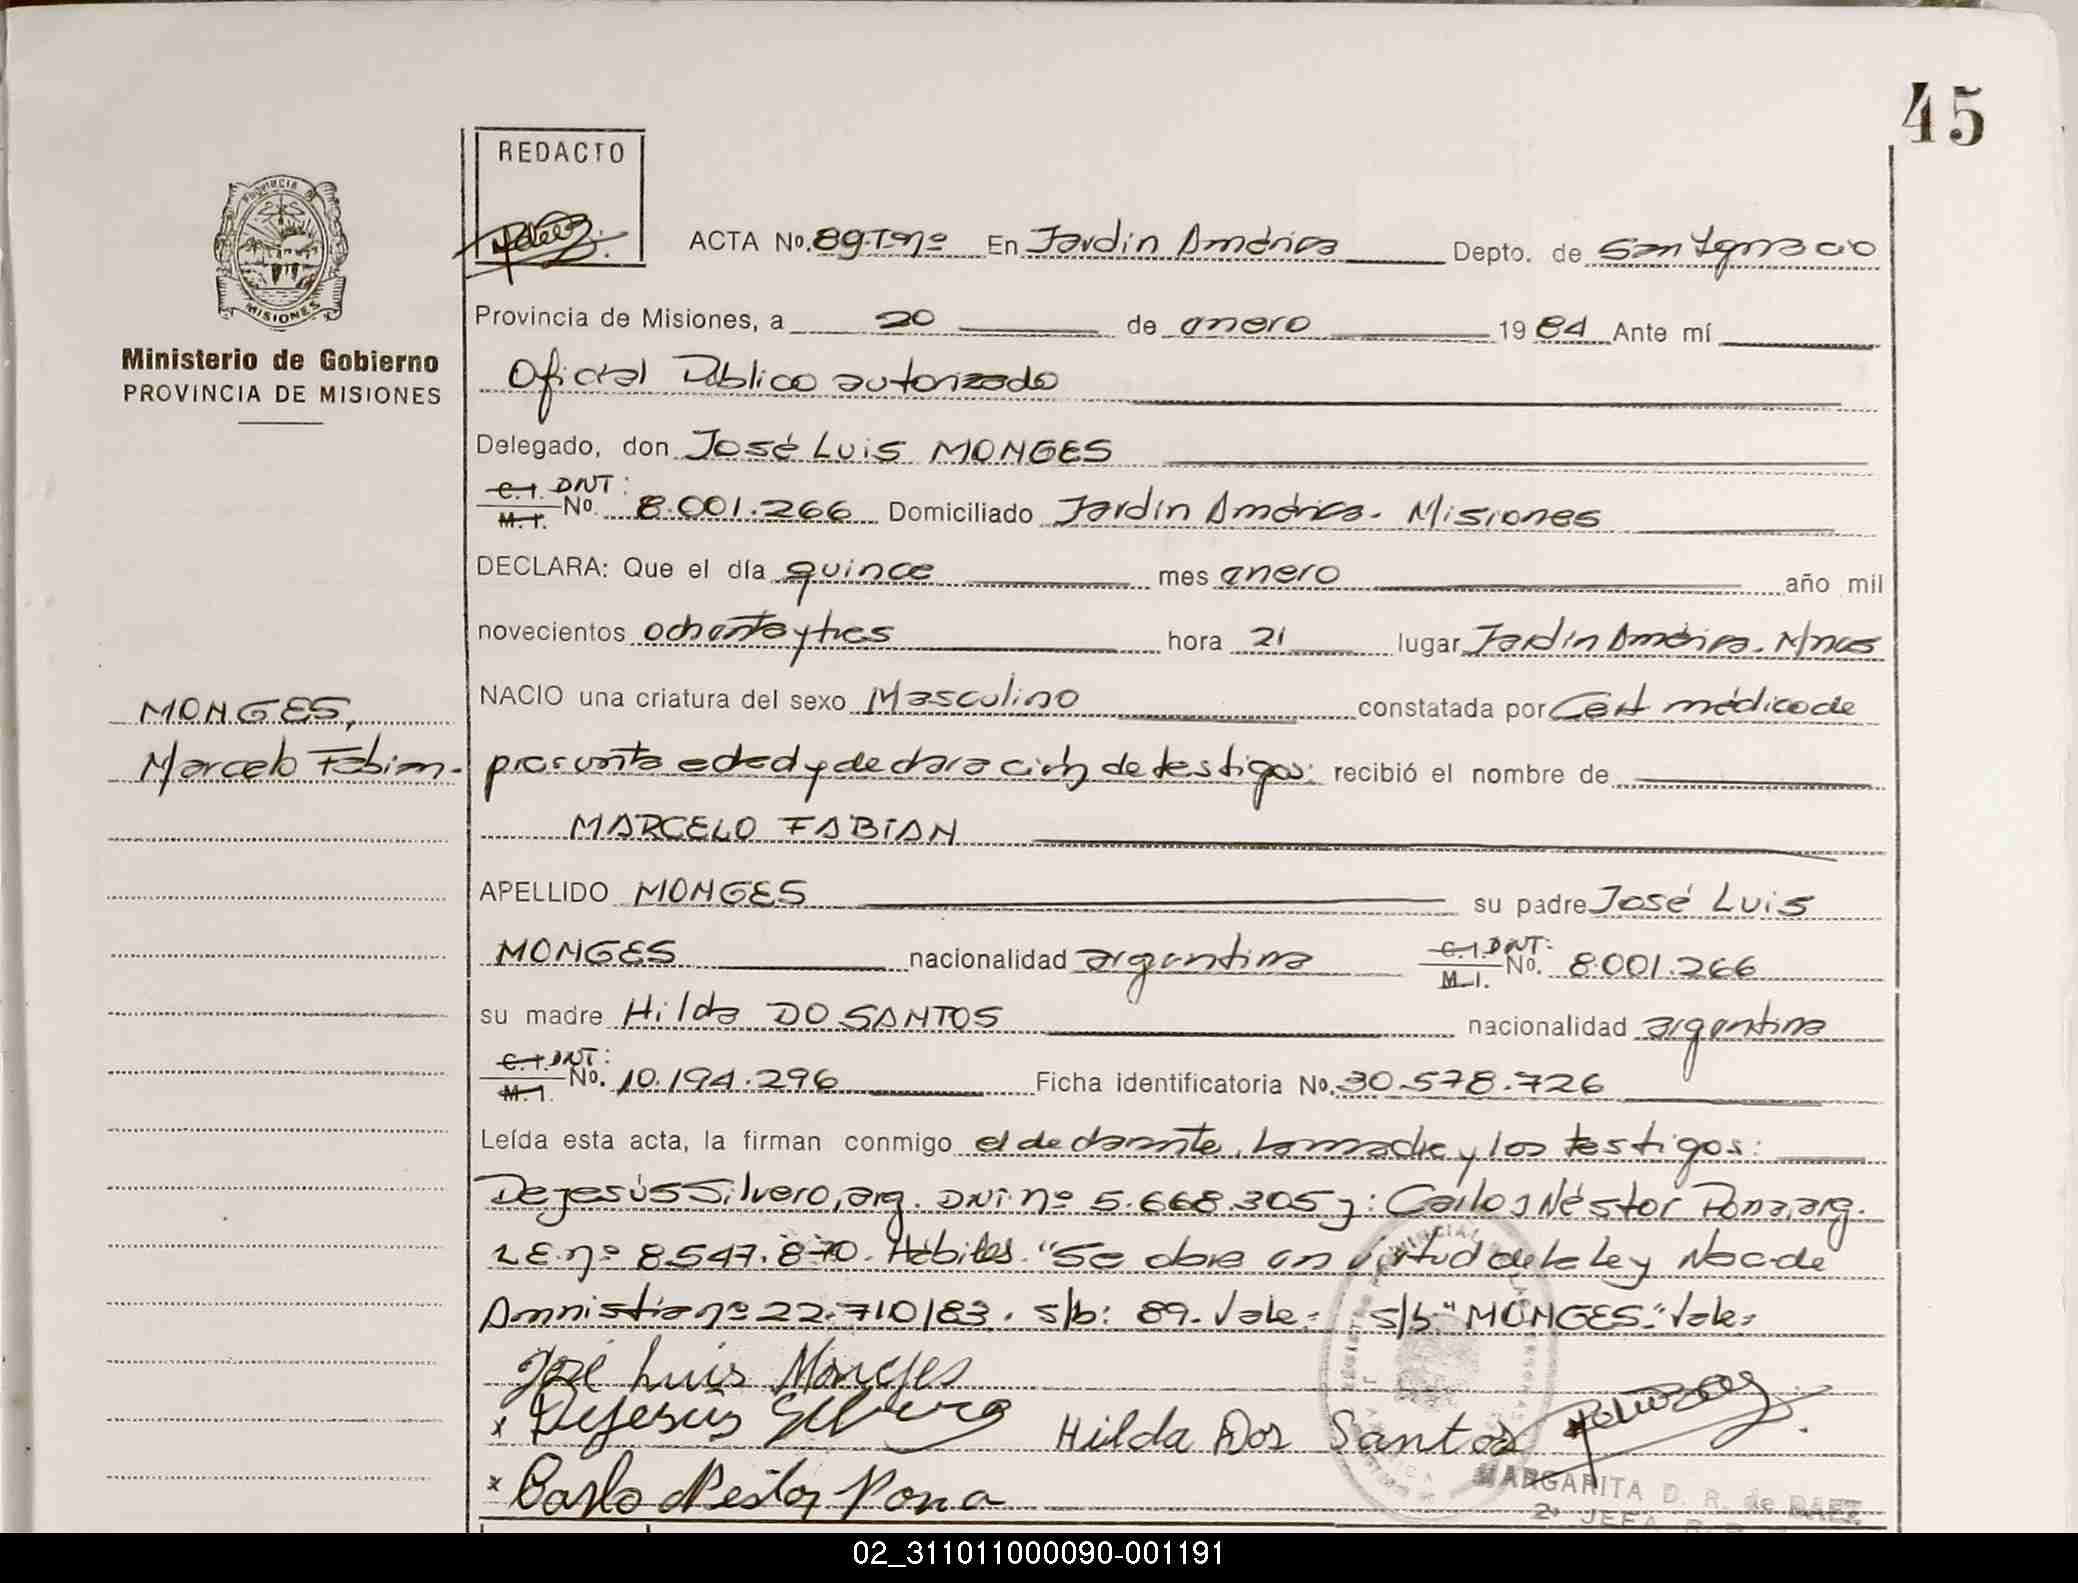 45
REDACTO
PROVINCIA DE
MISIONES
Ministerio de Gobierno
PROVINCIA DE MISIONES
ACTA No. 89-Tº1º En Jardín América Depto. de San Ignacio
Provincia de Misiones, a 20 de enero 1984 Ante mí
Oficial Público autorizado
Delegado, don José Luis MONGES
C.I. DNI:
M.I. No. 8.001.266 Domiciliado Jardín América. Misiones
DECLARA: Que el día quince mes enero año mil
novecientos ochenta y tres hora 21 lugar Jardín América. Mnes
NACIO una criatura del sexo Masculino constatada por Cert médico de
MONGES,
Marcelo Fabian.
presunta edad y declaración de testigos: recibió el nombre de
MARCELO FABIAN
APELLIDO MONGES su padre José Luis
MONGES nacionalidad argentina C.I. DNI: M.I. No. 8.001.266
su madre Hilda DO SANTOS nacionalidad argentina
C.I. DNI:
M.I. No. 10.194.296 Ficha identificatoria No. 30.578.726
Leída esta acta, la firman conmigo el declarante, la madre y los testigos:
Dejesús Silvero, arg. DNI nº 5.668.305 y: Carlos Néstor Pona, arg.
LE. nº 8.547.870. Hábiles. "Se labra en virtud de la Ley Nac. de
Amnistía nº 22.710/83. s/b: 89. Vale.- s/b "MONGES." Vale.-
José Luis Monges
x Dejesús Silvero Hilda Dos Santos
x Carlo Nestor Pona
MARGARITA D. R. de PAEZ
2º JEFA
02_311011000090-001191